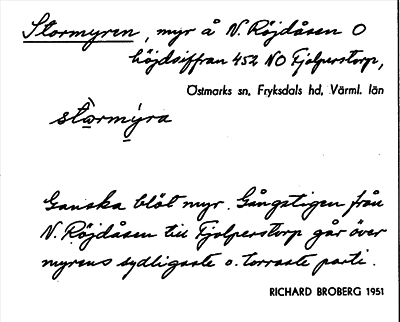 Stormyren, myr å N. Röjdåsen O
höjdsiffran 452 NO Fjolperstorp,
Östmarks sn, Fryksdals hd, Värml. län
stòrmýra
Ganska blöt myr. Gångstigen från
N. Röjdåsen till Fjolperstorp går över
myrens sydligaste o. torraste parti.
RICHARD BROBERG 1951